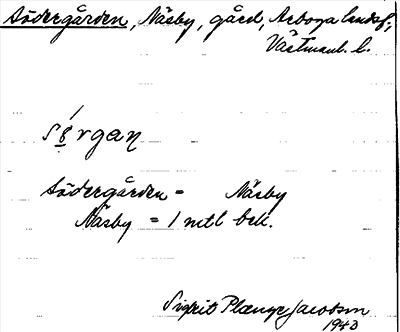 Södergården, Näsby, gård, Arboga landsf.,
Västmanl. l.
Sörgan
Södergården = Näsby
Näsby = 1 mtl bek.
Sigrit Plænge Jacobson
1943